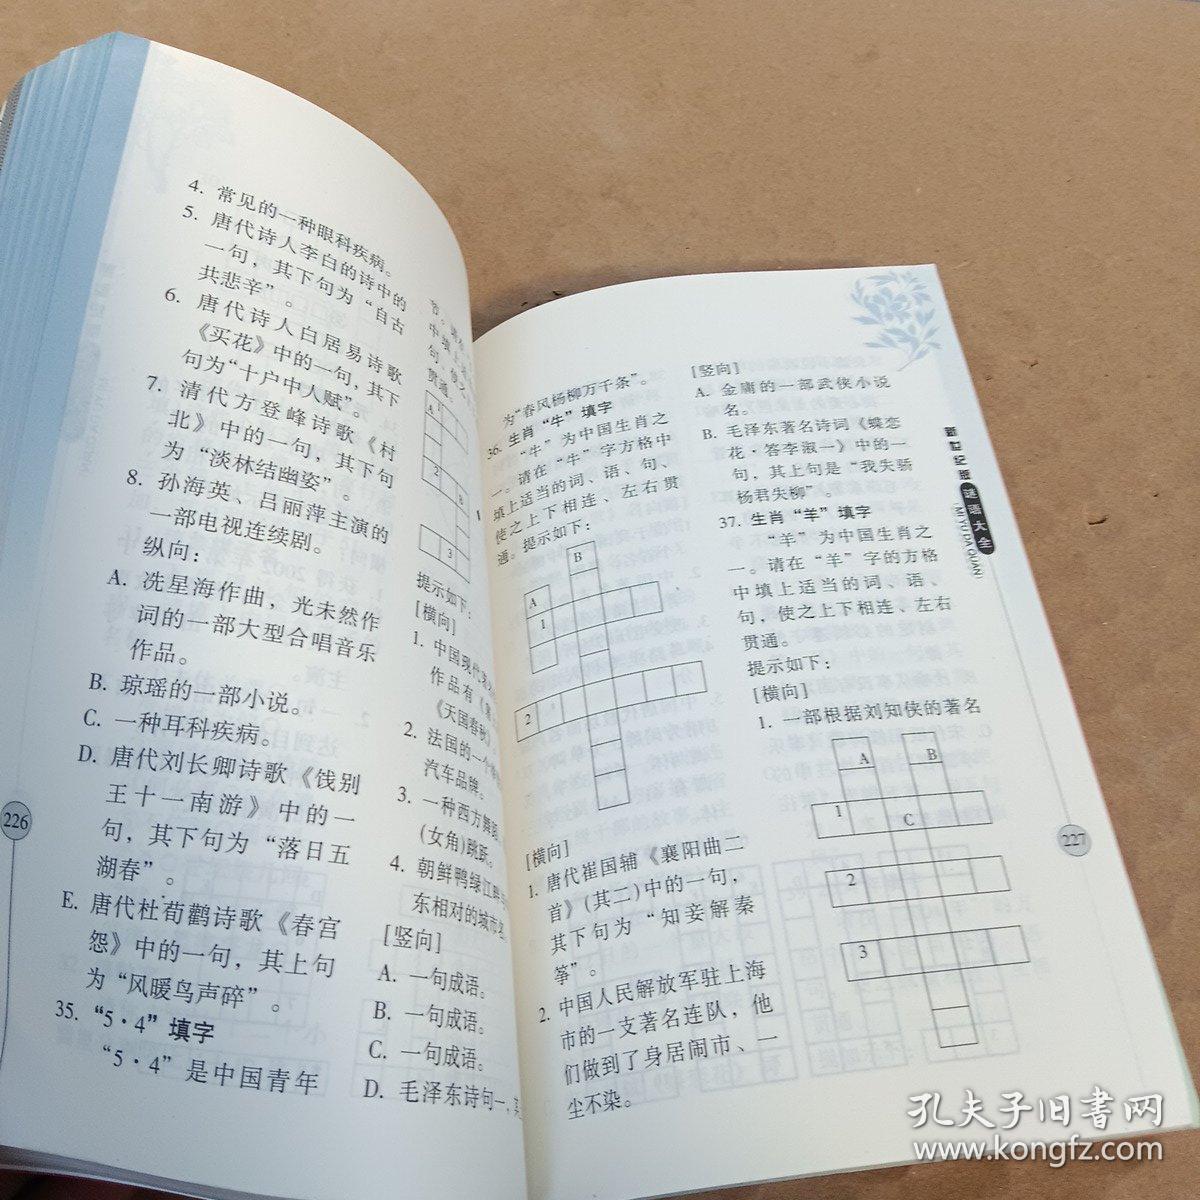 4. 常见的一种眼科疾病。
5. 唐代诗人李白的诗中的
一句，其下句为“自古
共悲辛”。
6. 唐代诗人白居易诗歌
《买花》中的一句，其下
句为“十户中人赋”。
7. 清代方登峰诗歌《村
北》中的一句，其下句
为“淡林结幽姿”。
8. 孙海英、吕丽萍主演的
一部电视连续剧。
纵向：
A. 冼星海作曲，光未然作
词的一部大型合唱音乐
作品。
B. 琼瑶的一部小说。
C. 一种耳科疾病。
D. 唐代刘长卿诗歌《饯别
王十一南游》中的一
句，其下句为“落日五
湖春”。
E. 唐代杜荀鹤诗歌《春宫
怨》中的一句，其上句
为“风暖鸟声碎”。
35. “5·4”填字
“5·4”是中国青年
226
节。请在
中填上
句，使之
贯通。
1
A
2
B
3
提示如下：
[横向]
1. 中国现代
作品有《
《天国春秋》。
2. 法国的一个
汽车品牌。
3. 一种西方舞蹈
(女角)跳跃。
4. 朝鲜鸭绿江畔
东相对的城市名。
[竖向]
A. 一句成语。
B. 一句成语。
C. 一句成语。
D. 毛泽东诗句一，其
为“春风杨柳万千条”。
36. 生肖“牛”填字
“牛”为中国生肖之
一。请在“牛”字方格中
填上适当的词、语、句、
使之上下相连、左右贯
通。提示如下：
B
A
1
2
[横向]
1. 唐代崔国辅《襄阳曲二
首》(其二)中的一句，
其下句为“知妾解秦
筝”。
2. 中国人民解放军驻上海
市的一支著名连队，他
们做到了身居闹市、一
尘不染。
[竖向]
A. 金庸的一部武侠小说
名。
B. 毛泽东著名诗词《蝶恋
花·答李淑一》中的一
句，其上句是“我失骄
杨君失柳”。
37. 生肖“羊”填字
“羊”为中国生肖之
一。请在“羊”字的方格
中填上适当的词、语、
句，使之上下相连、左右
贯通。
提示如下：
[横向]
1. 一部根据刘知侠的著名
A
B
1
C
2
3
新世纪版
谜语大全
MIYU DAQUAN
227
孔夫子旧书网
www.kongfz.com